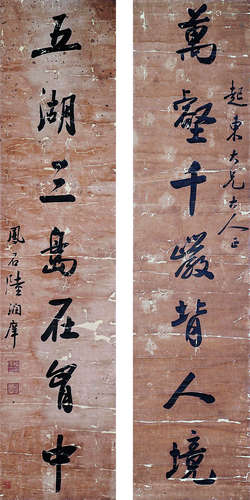 起東大兄大人正
萬壑千巖背人境
五湖三島在胷中
鳳石陸潤庠